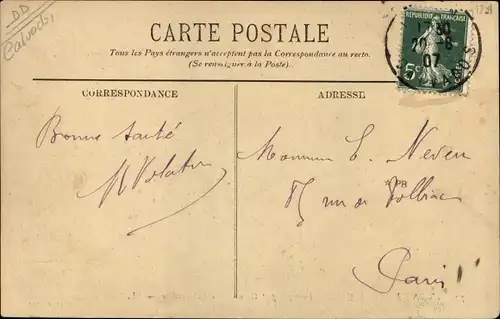 DD
Calvados
CARTE POSTALE
Tous les Pays étrangers n'acceptent pas la Correspondance au recto.
(Se renseigner à la Poste).
RÉPUBLIQUE FRANÇAISE
5c
30
20-8
07
CORRESPONDANCE
ADRESSE
Bonne santé
Monsieur E. Neveu
rue de Tolbiac
Paris